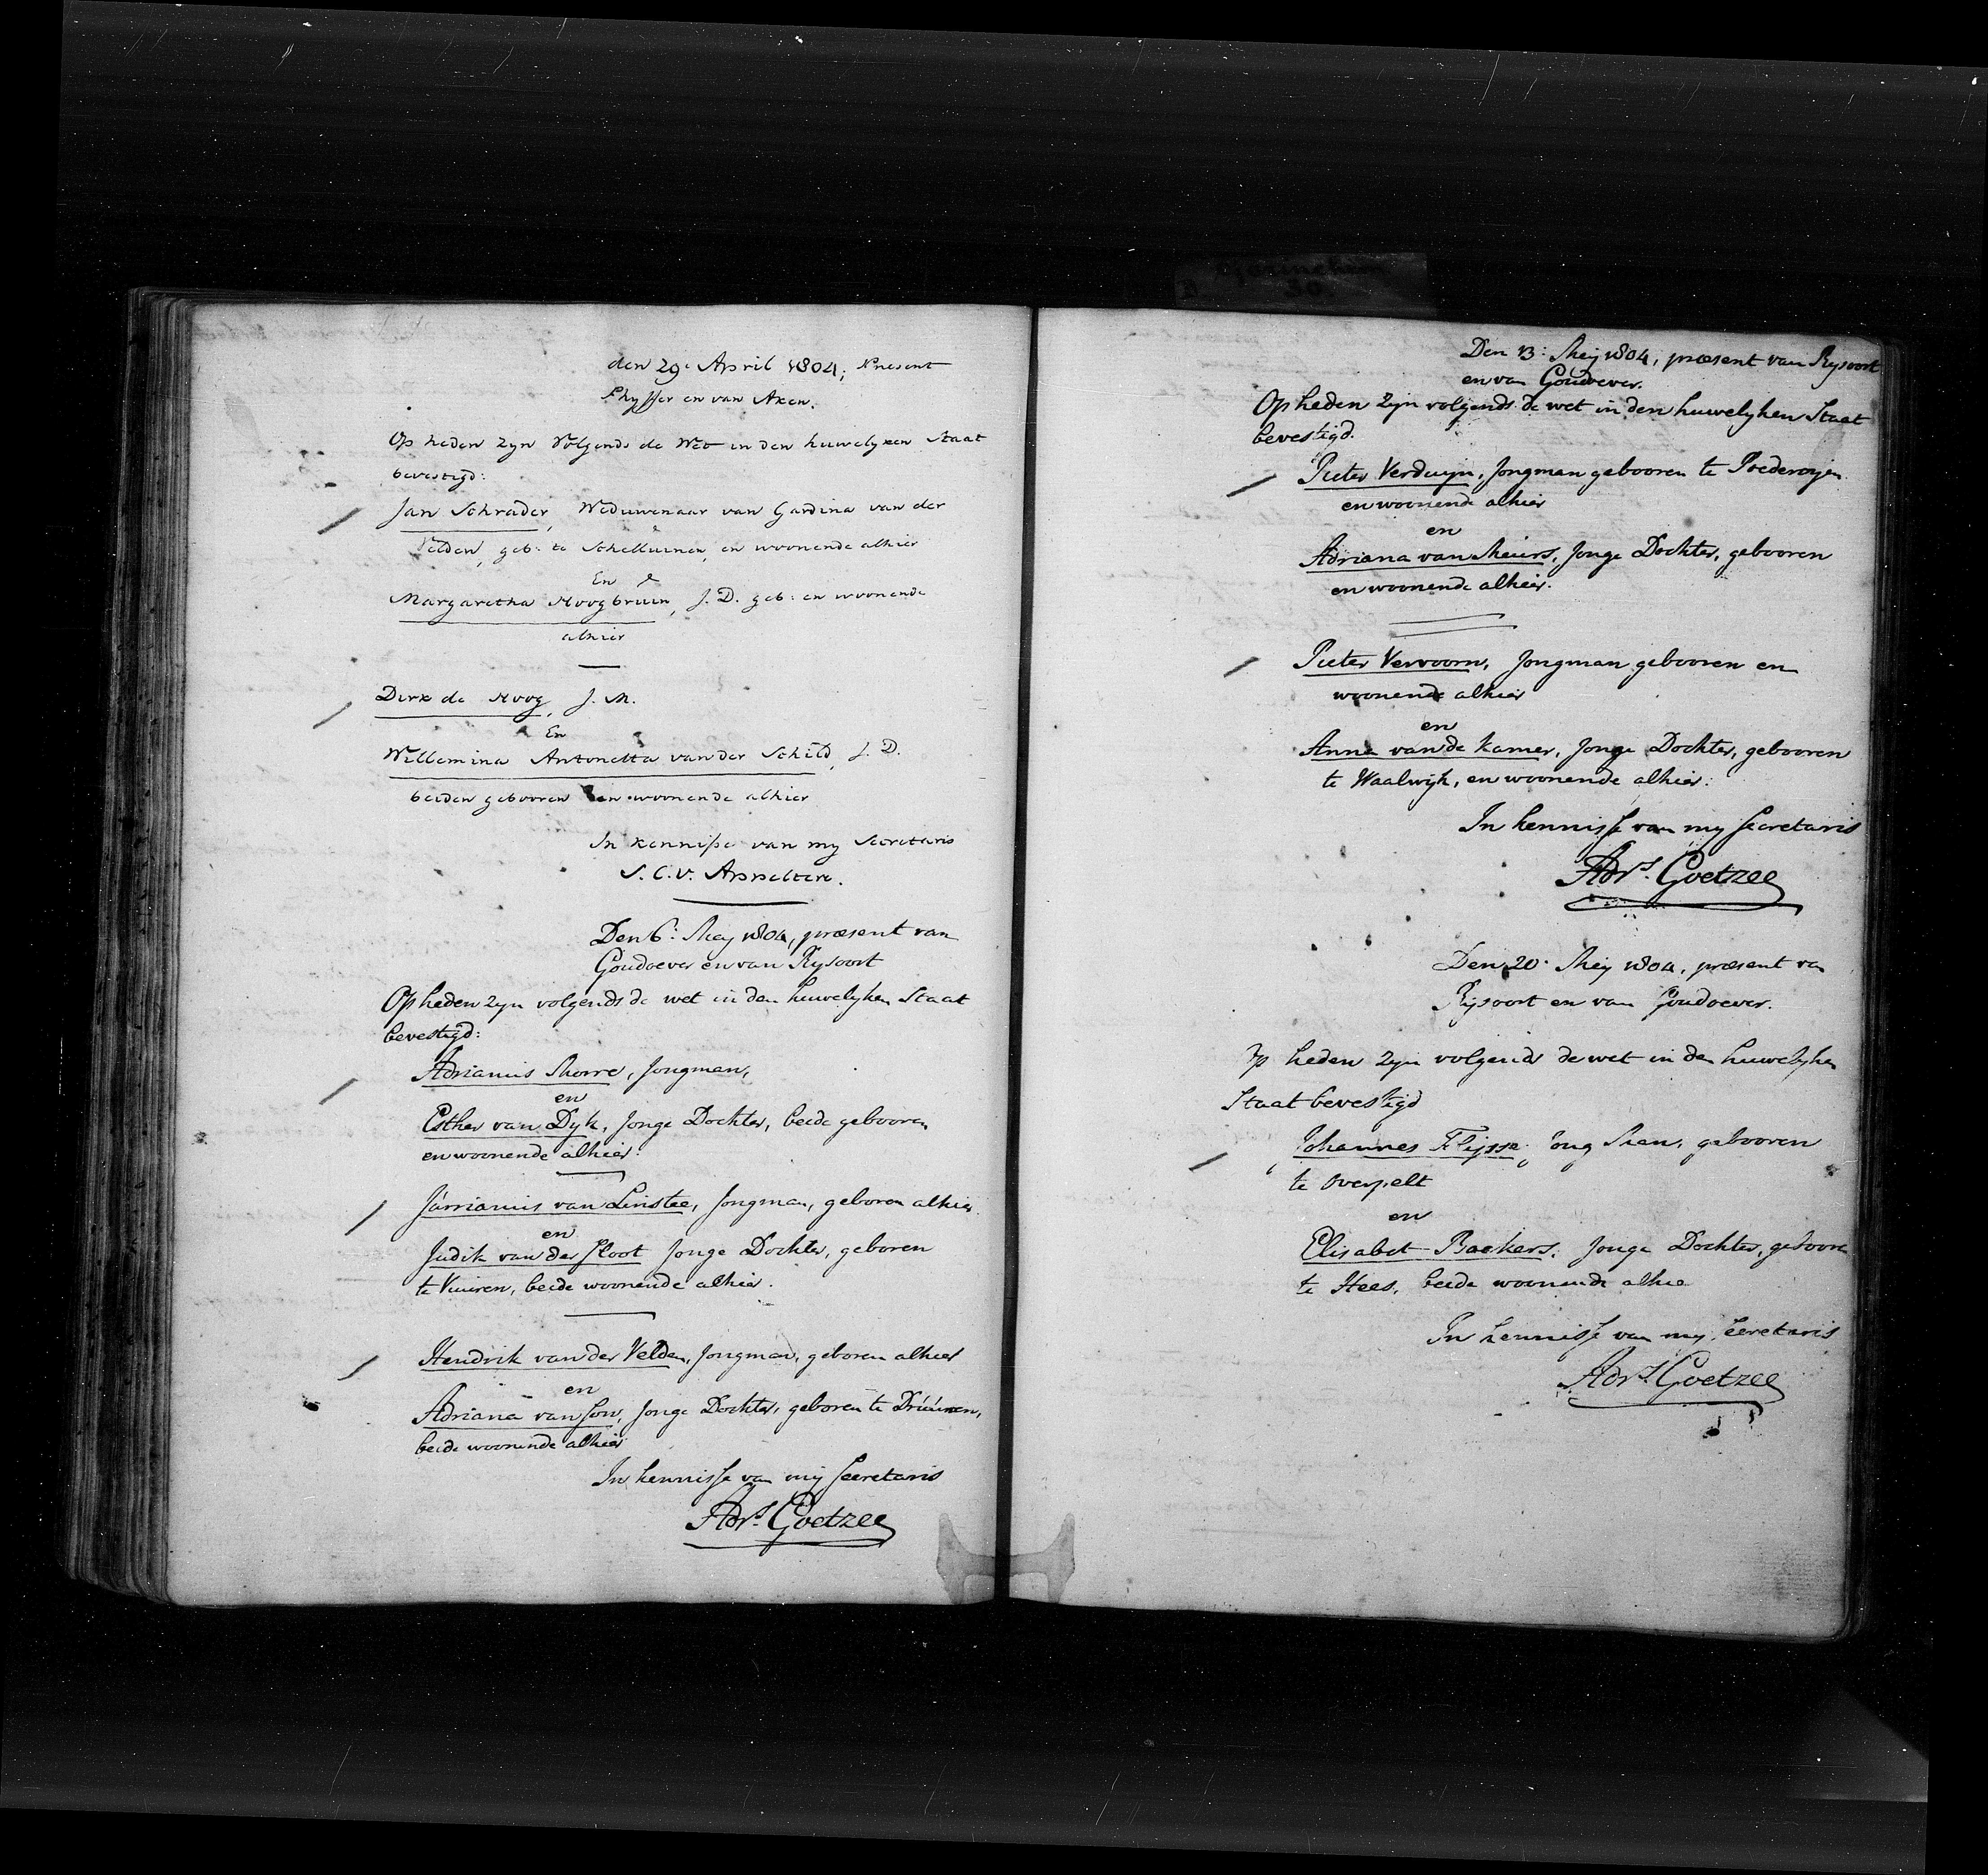 den 29e April 1804; Present
Thysser en van Aken.
Op heden zyn Volgends de Wet in den huwelyken Staat
bevestigd:
Jan Schrader, Weduwenaar van Gardina van der
Velden, geb: te Schelluinen, en woonende alhier
En
Margaretha Hoogbruin, J. D. geb: en woonende
alhier
Dirk de Hoog, J. M.
En
Willemina Antonetta van der Schild, J. D.
beiden gebooren en woonende alhier
In kennisse van my Secretaris
S. C. V. Appeltere.
Den 6: Mey 1804, præsent van
Goudoever en van Rysoort
Op heden zyn volgends de wet in den huwelyken Staat
bevestigd:
Adrianus Morre, Jongman,
en
Esther van Dyk, Jonge Dochter, beide gebooren
en woonende alhier.
van Linstee, Jongman, geboren alhier
en
Judik van der Sloot Jonge Dochter, geboren
te Vuuren, beide woonende alhier.
Hendrik van der Velden, Jongman, geboren alhier
en
Adriana van Son, Jonge Dochter, geboren te Drúúnen,
beide woonende alhier
In kennisse van mij Secretaris
Adrs. Goetzee
Gorinchem
30
Den 13: Mey 1804, præsent van Rysoort
en van Goudoever.
Op heden zijn volgends de wet in den huwelyken Staat
bevestigd.
Pieter Verduyn, Jongman gebooren te Poederoyen
en woonende alhier
en
Adriana van Meurs, Jonge Dochter, gebooren
en woonende alhier.
Pieter Vervoorn, Jongman gebooren en
woonende alhier
en
Anna van de Kamer, Jonge Dochter, gebooren
te Waalwijk, en woonende alhier.
In kennisse van my Secretaris
Adrs. Goetzee
Den 20. Mey 1804, præsent van
Rijsoort en van Goudoever.
Op heden zyn volgends de wet in den huwelyken
Staat bevestigd
Johannes Flijsse, Jong Man, gebooren
te Overpelt
en
Elisabet Backers, Jonge Dochter, geboore
te Hees, beide woonende alhie
In kennisse van my Secretaris
Adrs. Goetzee